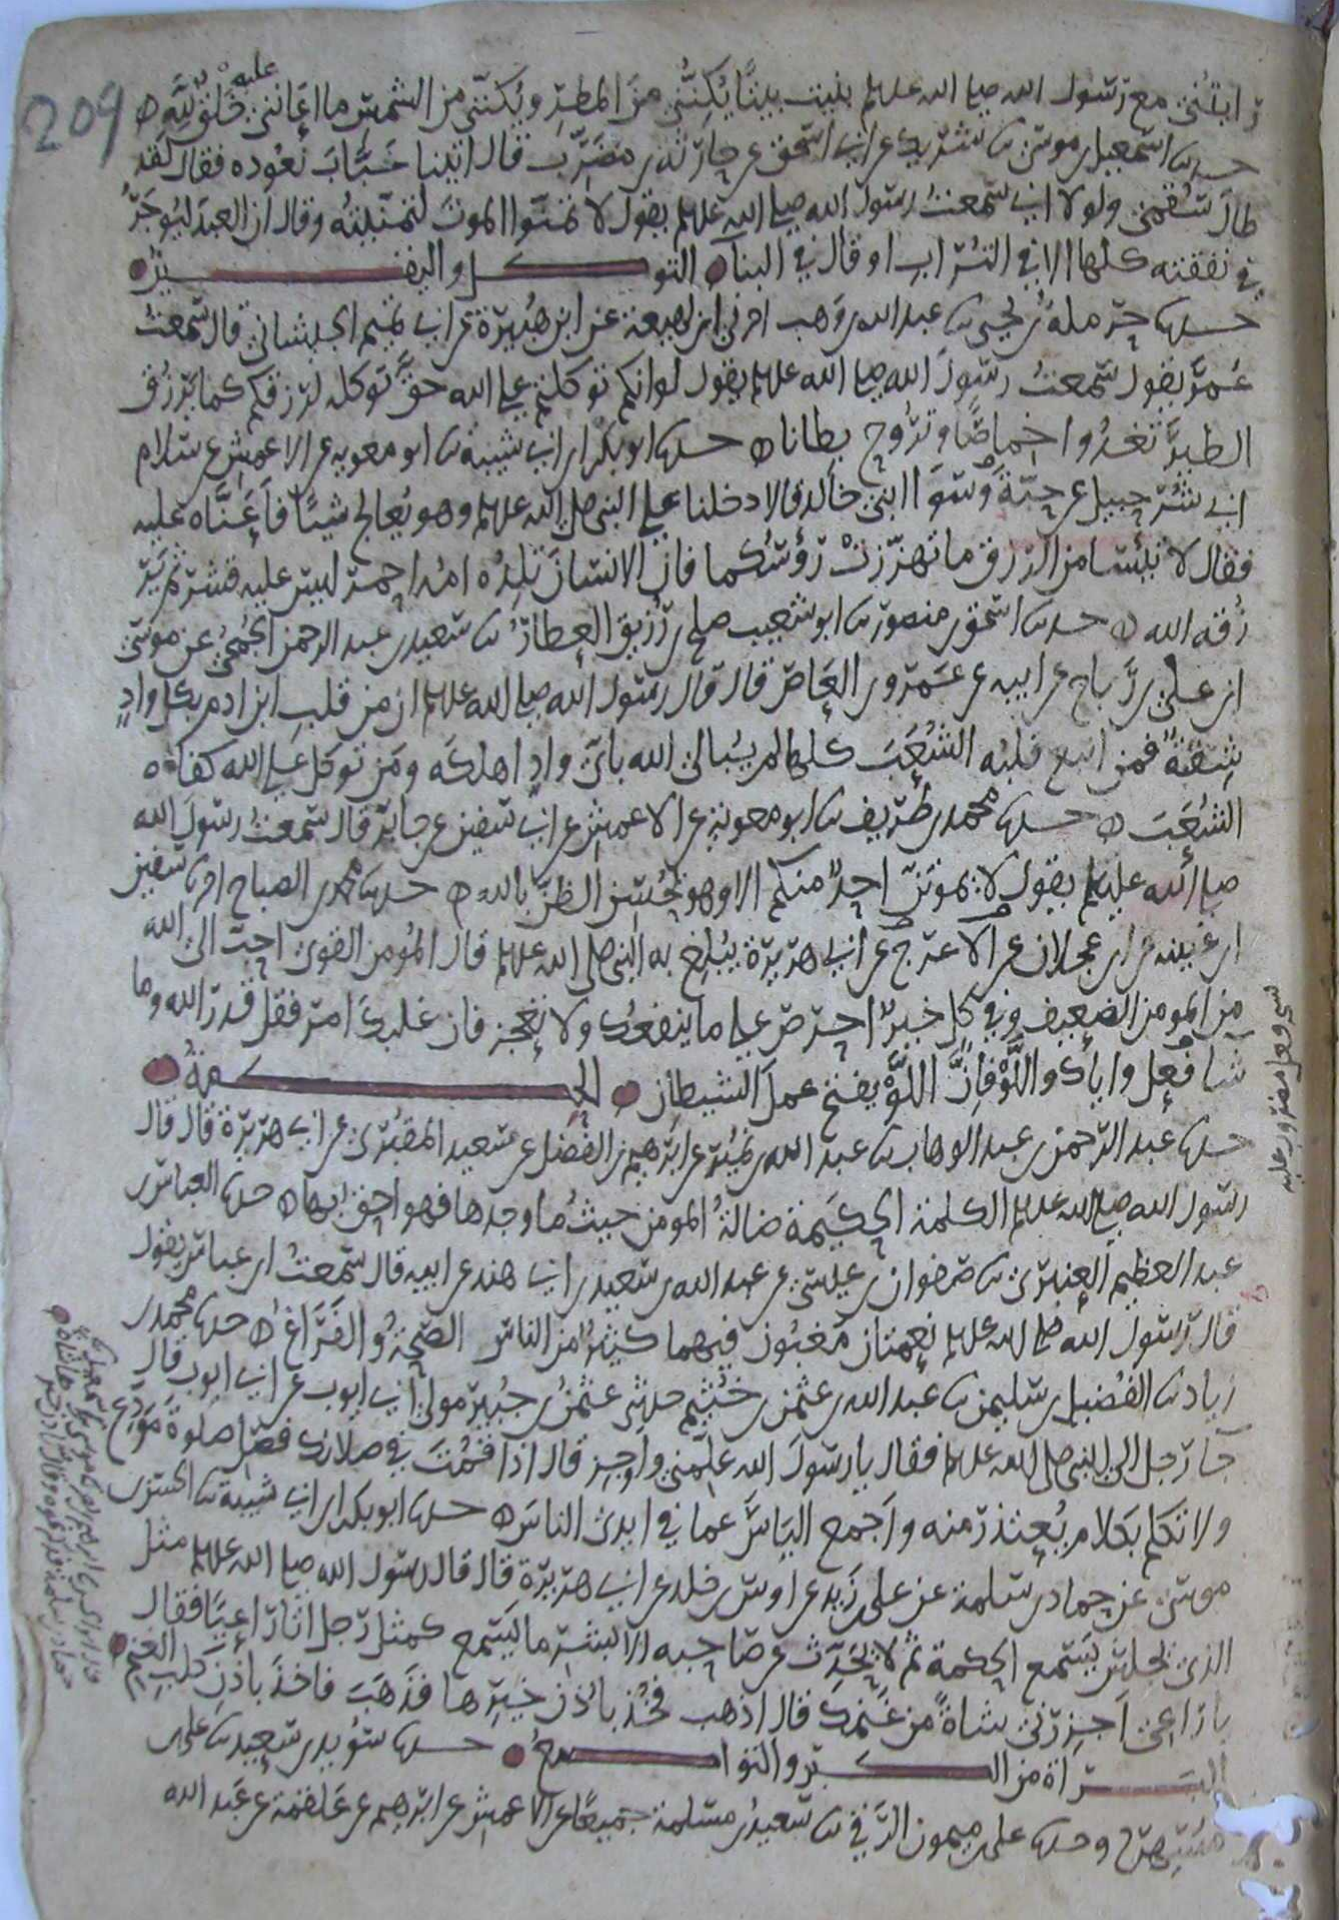 209
رايتني مع رسول الله صلى الله علىلم بنيت بيتا يكنني من المطر ويكنني من الشمس ما اعانني عليه خلق لله ه
حدثنا اسمعيل بن موسى ثنا شريك عن ابي اسحق عن حارثة بن مضرب قال اتينا خبابا نعوده فقال لقد
طال سقمي ولولا اني سمعت رسول الله صلى الله علىلم يقول لا تمنوا الموت لتمنيته وقال ان العبد ليوجر
في نفقته كلها الا في التراب او قال في البنا التوكل واليقين
حدثنا حرملة بن يحيى ثنا عبد الله بن وهب اخبرني ابن لهيعة عن ابن هبيرة عن ابي تميم الجيشاني قال سمعت
عمر يقول سمعت رسول الله صلى الله علىلم يقول لو انكم توكلتم على الله حق توكله لرزقكم كما يرزق
الطير تغدوا خماصا وتروح بطانا ه حدثنا ابو بكر ابن ابي شيبة ثنا ابو معوية عن الاعمش عن سلام
ابي شرحبيل عن حبة وسوا ابني خالد قالا دخلنا على النبي صلى الله علىلم وهو يعالج شيئا فاعناه عليه
فقال لا تيئسا من الرزق ما تهززت رؤسكما فان الانسان تلده امه احمر ليس عليه قشر ثم ير
زقه الله ه حدثنا اسحق بن منصور ثنا ابو شعيب صلح بن رزيق العطار ثنا سعيد بن عبد الرحمن الجمحي عن موسى
ابن على بن رباح عن ابيه عن عمرو بن العاص قال قال رسول الله صلى الله علىلم ان من قلب ابن ادم بكل واد
شعبة فمن اتبع قلبه الشعب كلها لم يبالي الله باي واد اهلكه ومن توكل على الله كفاه
الشعب ه حدثنا محمد بن طريف ثنا ابو معوية عن الاعمش عن ابي سفين عن جابر قال سمعت رسول الله
صلى الله علىلم يقول لا يموتن احد منكم الا وهو يحسن الظن بالله ه حدثنا محمد بن الصباح اخبرنا سفين
ابن عيينه عن ابن عجلان عن الاعرج عن ابي هريرة يبلغ به النبي صلى الله علىلم قال المؤمن القوي احب الى الله
من المومن الضعيف وفي كل خير احرص على ما ينفعك ولا تعجز فان غلبك امر فقل قدر الله وما
شا فعل واياك واللو فان اللو يفتح عمل الشيطان الحكمة
حدثنا عبد الرحمن بن عبد الوهاب ثنا عبد الله بن نمير عن ابرهيم بن الفضل عن سعيد المقبري عن ابي هريرة قال قال
رسول الله صلى الله علىلم الكلمة الحكيمة ضالة المومن حيث ما وجدها فهو احق بها ه حدثنا العباس بن
عبد العظيم العنبري ثنا صفوان بن عيسى عن عبد الله بن سعيد بن ابي هند عن ابيه قال سمعت ابن عباس يقول
قال رسول الله صلى الله علىلم نعمتان مغبون فيهما كثير من الناس الصحة والفراغ ه حدثنا محمد بن
زياد ثنا الفضيل بن سليمن ثنا عبد الله بن عثمن بن خثيم حدثني عثمن بن جبير مولى ابي ايوب عن ابي ايوب قال
جا رجل الى النبي صلى الله علىلم فقال يا رسول الله علمني واوجز قال اذا قمت في صلاتك فصل صلوة مودع
ولا تكلم بكلام يعتذر منه واجمع الياس عما في ايدي الناس ه حدثنا ابو بكر ابن ابي شيبة ثنا الحسن بن
موسى عن حماد بن سلمة عن علي بن زيد عن اوس بن خلد عن ابي هريرة قال قال رسول الله صلى الله علىلم مثل
الذي يجلس يستمع الحكمة ثم لا يحدث عن صاحبه الا بشر ما يستمع كمثل رجل اتا راعيا فقال
يا راعي اجزرني شاة من غنمك قال اذهب فخذ باذن خيرها فذهب فاخذ باذن كلب الغنم
البراة من الكبر والتواضع حدثنا سويد بن سعيد ثنا على بن
مسهر ح وحدثنا على بن ميمون الرقي ثنا سعيد بن مسلمة جميعا عن الاعمش عن ابرهيم عن علقمة عن عبد الله